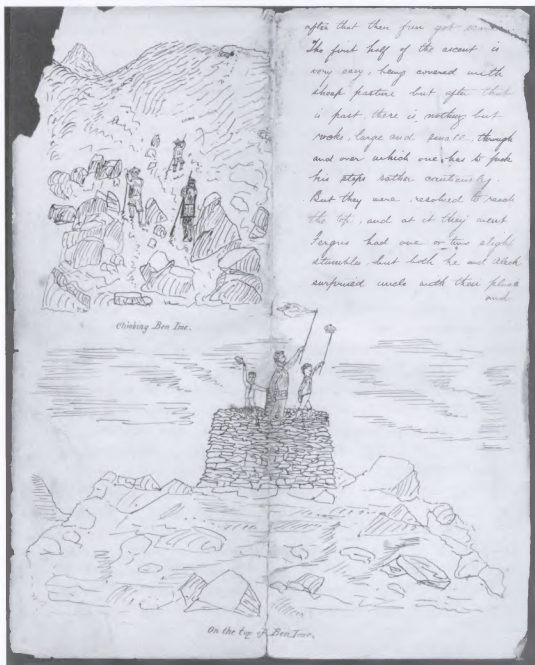 after that then fun got
The first half of the ascent is
very easy, being covered with
sheep pasture but after that
is past there is nothing but
rocks, large and small, through
and over which one has to pick
his steps rather cautiously.
But they were resolved to reach
the top, and at it they went
Fergus had one or two slight
stumbles but both he and Aleck
surprised uncle with their pluck
and
Climbing Ben Ime.
On the top of Ben Ime.